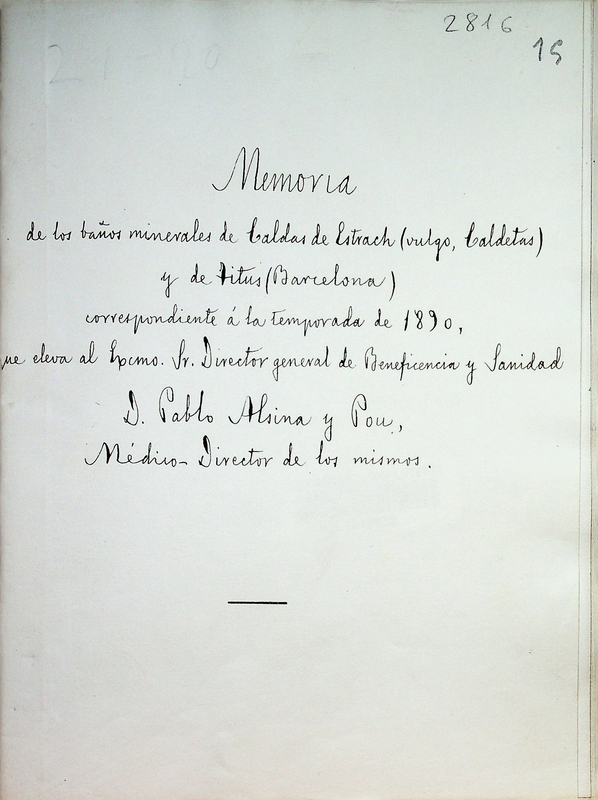 2816
15
Memoria
de los baños minerales de Caldas de Estrach (vulgo, Caldetas)
y de Titus (Barcelona)
correspondiente á la temporada de 1890,
ue eleva al Excmo. Sr. Director general de Beneficencia y Sanidad
D. Pablo Alsina y Pou,
Médico-Director de los mismos.